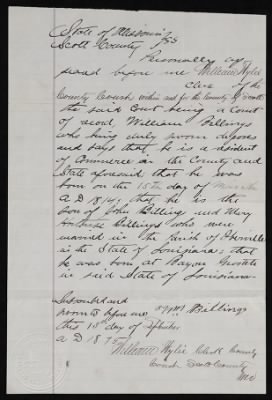 State of Missouri
Scott County } SS
Personally ap
peared before me William Wylie
Clerk of the
County Court within and for the County of Scott
the said Court being a Court
of record, William Billings
who being duly sworn deposes
and says that he is a resident
of Commerce in the County and
State aforesaid that he was
born on the 15th day of March
A D 1814, that he is the
son of John Billings and Mary
Billings who were
married in the Parish of
in the State of Louisiana that
he was born at Bayou
in said State of Louisiana
Subscribed and
sworn to before me Billings
this 15th day of September
A D 18
William Wylie Clerk County
Court Scott County
Mo